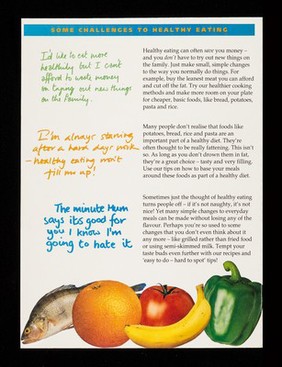 SOME CHALLENGES TO HEALTHY EATING
I'd like to eat more
healthily but I can't
afford to waste money
on trying out new things
on the family.
Healthy eating can often save you money –
and you don't have to try out new things on
the family. Just make small, simple changes
to the way you normally do things. For
example, buy the leanest meat you can afford
and cut off the fat. Try our healthier cooking
methods and make more room on your plate
for cheaper, basic foods, like bread, potatoes,
pasta and rice.
I'm always starving
after a hard days work
– healthy eating won't
fill me up!
Many people don't realise that foods like
potatoes, bread, rice and pasta are an
important part of a healthy diet. They're
often thought to be really fattening. This isn't
so. As long as you don't drown them in fat,
they're a great choice – tasty and very filling.
Use our tips on how to base your meals
around these foods as part of a healthy diet.
The minute Mum
says its good for
you I know I'm
going to hate it
Sometimes just the thought of healthy eating
turns people off – if it's not naughty, it's not
nice! Yet many simple changes to everyday
meals can be made without losing any of the
flavour. Perhaps you're used to some
changes that you don't even think about it
any more – like grilled rather than fried food
or using semi-skimmed milk. Tempt your
taste buds even further with our recipes and
'easy to do – hard to spot' tips!